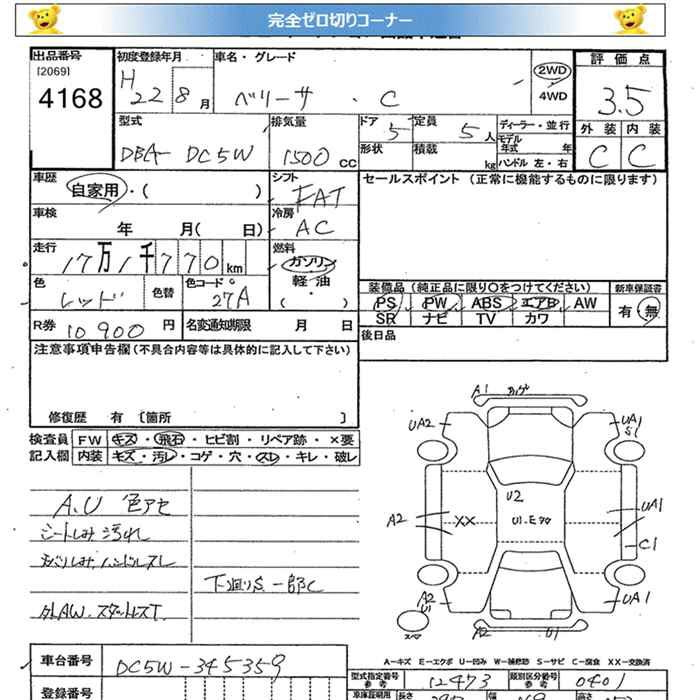 完全ゼロ切りコーナー
出品番号 初度登録年月 車名・グレード 評価点
[2069] H 2WD
4168 22 8月 ベリーサ・C 4WD 3.5
型式 排気量 ドア 5 定員 5人 ディーラー・並行 外装 内装
DBA- DC5W 1500 CC 形状 積載 kg モデル年式 年 C C
ハンドル 左・右
車歴 自家用・( ) シフト FAT セールスポイント (正常に機能するものに限ります)
車検 年 月( 日) 冷房 AC
走行 17万1千770km 燃料 ガソリン
軽油
色 レッド 色替 色コード 27A ( ・ ) 装備品 (純正品に限り○をつけてください) 新車保証書
PS PW ABS エアB AW 有・無
R券 10900円 名変通知期限 月 日 SR ナビ TV カワ
注意事項申告欄(不具合内容等は具体的に記入して下さい) 後日品
修復歴 有 [箇所 ]
検査員 FW キズ・飛石・ヒビ割・リペア跡・×要
記入欄 内装 キズ・汚レ・コゲ・穴・スレ・キレ・破レ
A1
UA2 UA1
S1
A.U 色アセ U2
シートしみ汚れ A2 XX U1.E UA1
ハンドルスレ C1
下廻りS 一部C
外AW.スタットレスT A2 U1 UA1
A2 U1
車台番号 DC5W-345359 A-キズ E-エクボ U-凹み W-補修跡 S-サビ C-腐食 XX-交換済
型式指定番号 参考 12473 類別区分番号 参考 0401
登録番号 車庫証明用 長さ 幅 高さ